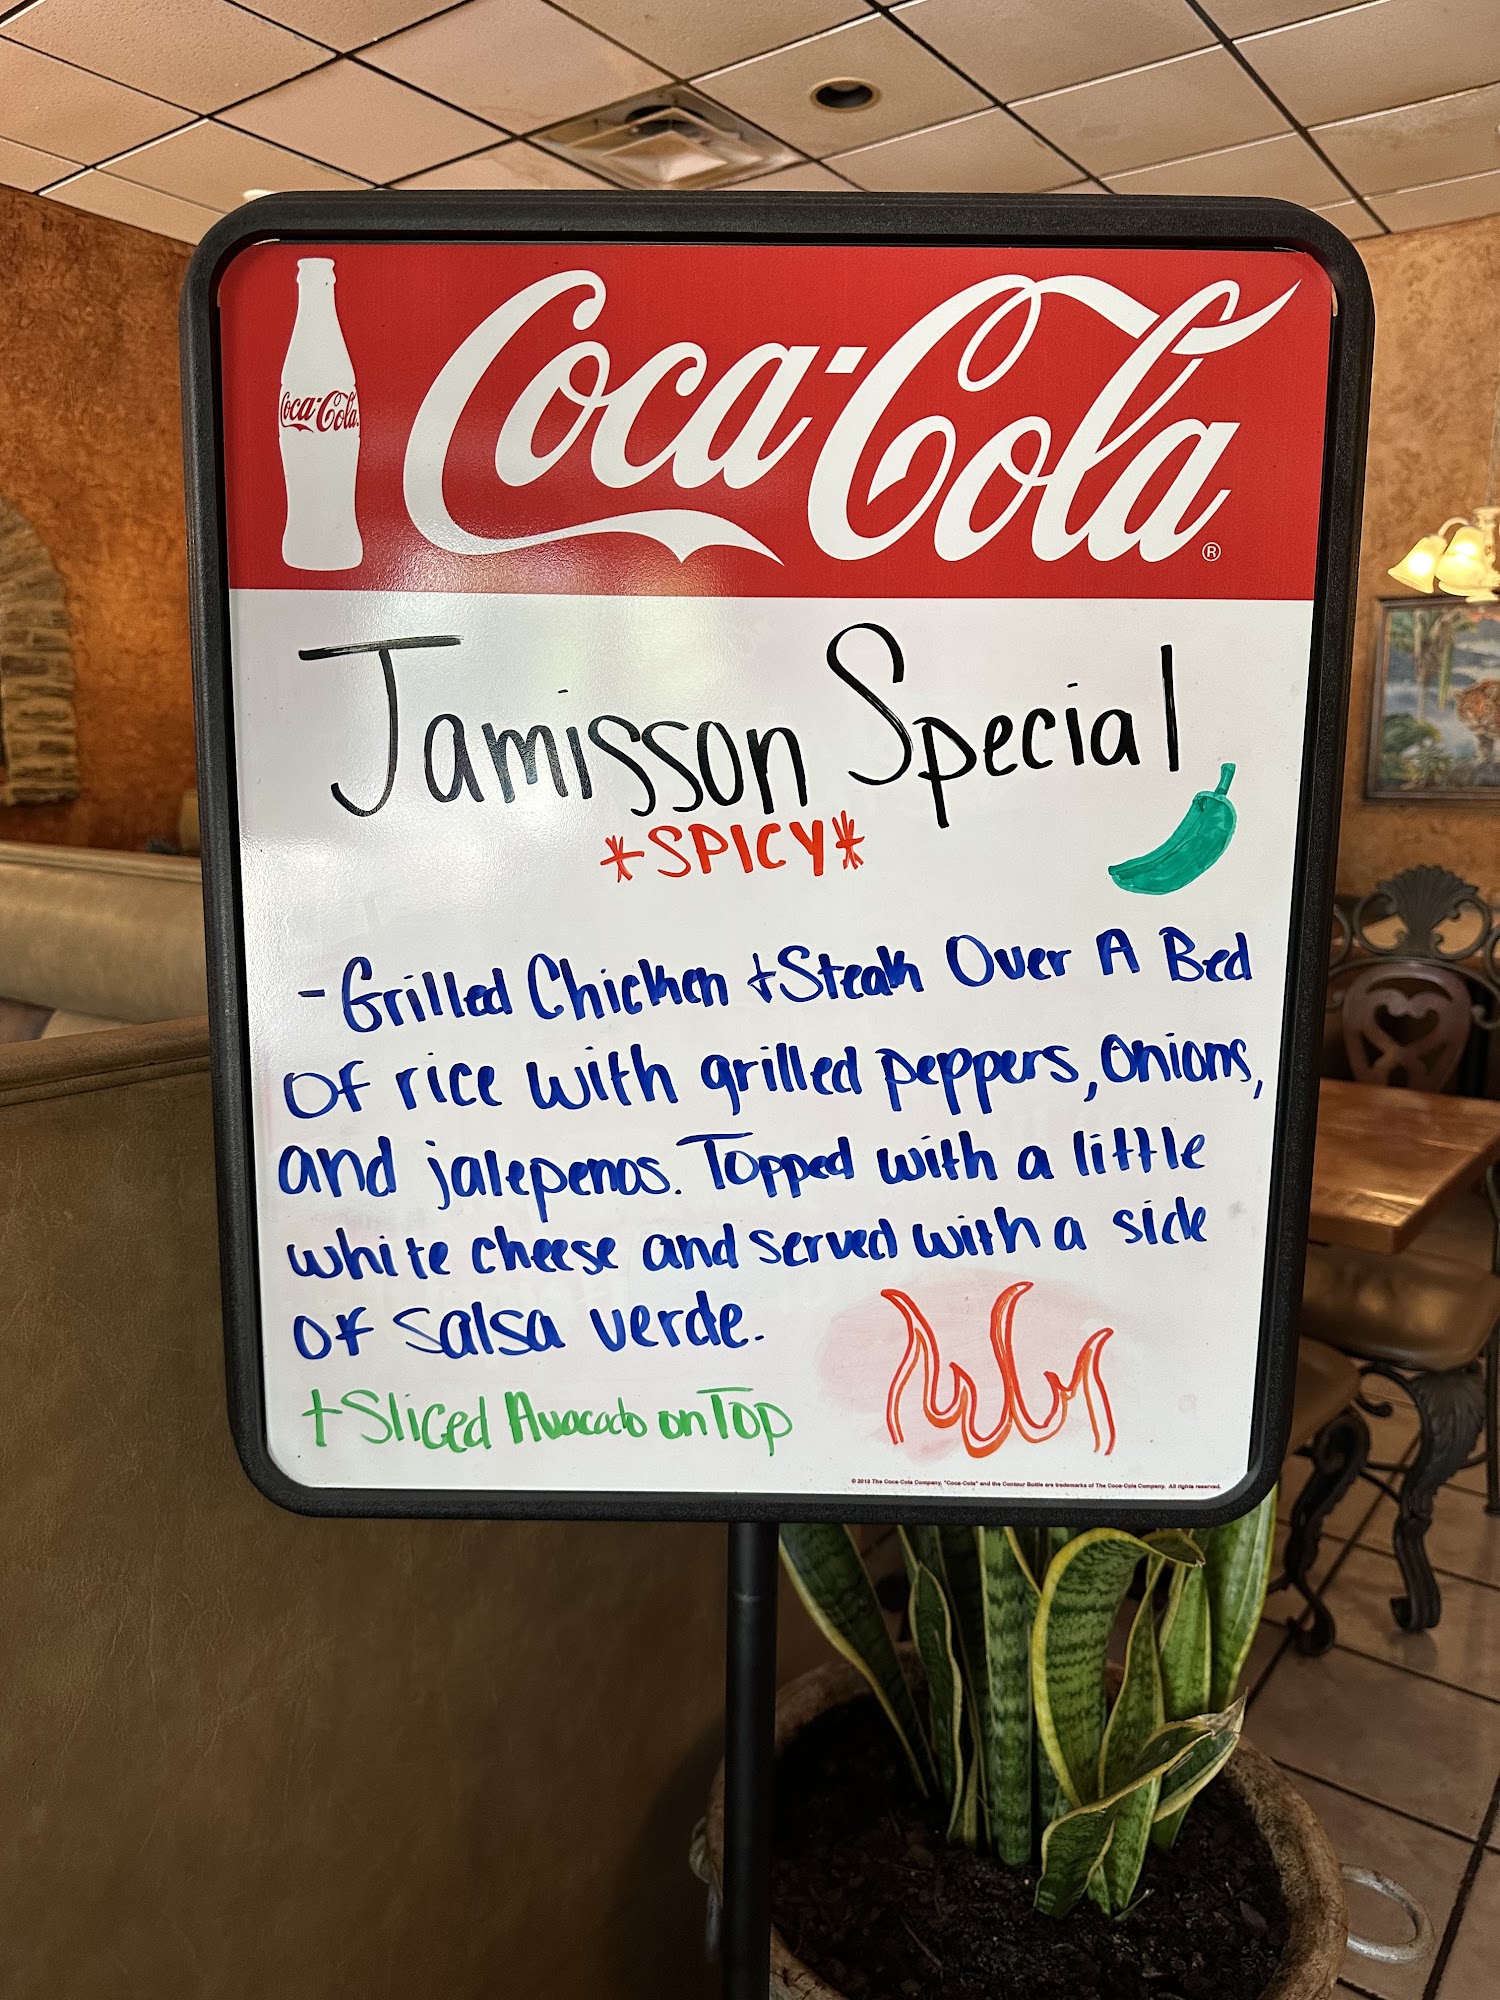 Coca-Cola
Coca-Cola®
Jamisson Special
*SPICY*
- Grilled Chicken + Steak Over A Bed
Of rice with grilled peppers, onions,
and jalepenos. Topped with a little
white cheese and served with a side
of salsa verde.
+ Sliced Avocado on Top
© 2013 The Coca-Cola Company. "Coca-Cola" and the Contour Bottle are trademarks of The Coca-Cola Company. All rights reserved.